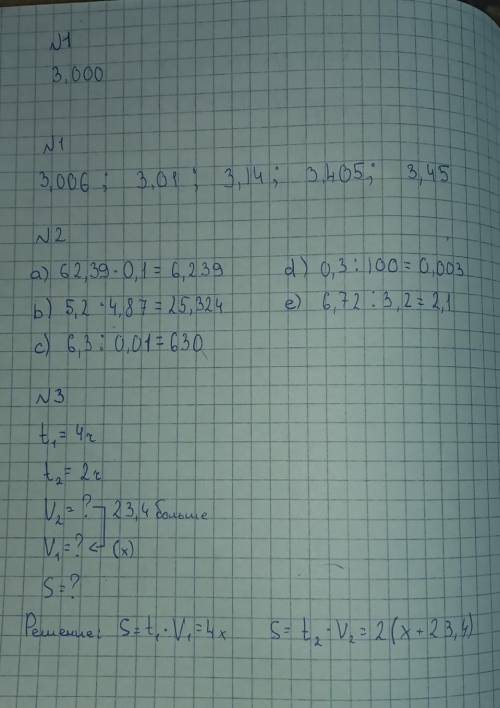 N1
3,000
N1
3,006 ; 3,01 ; 3,14 ; 3,405 ; 3,45
N2
a) 62,39 · 0,1 = 6,239
b) 5,2 · 4,87 = 25,324
c) 6,3 : 0,01 = 630
d) 0,3 : 100 = 0,003
e) 6,72 : 3,2 = 2,1
N3
t₁ = 4ч
t₂ = 2ч
V₂ = ? 23,4 больше
V₁ = ? ← (x)
S = ?
Решение: S = t₁ · V₁ = 4x S = t₂ · V₂ = 2(x + 23,4)